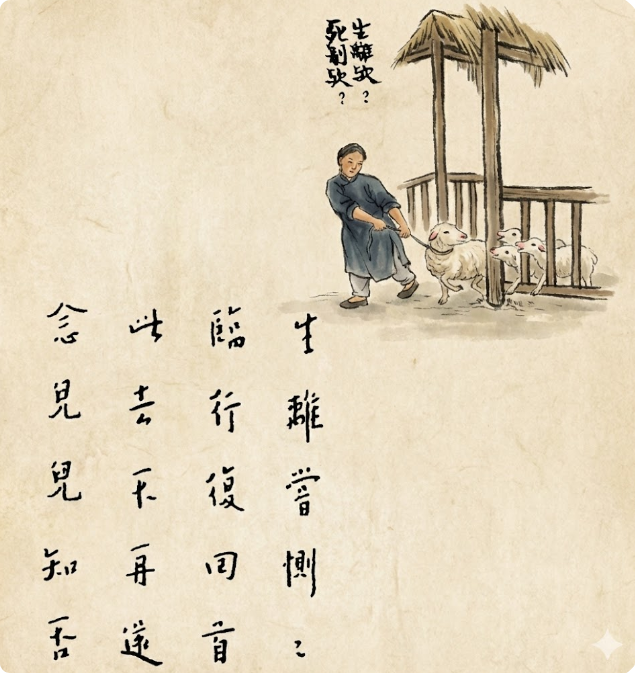 生離欤?
死別欤?
生離嘗惻〻
臨行復回首
此去不再還
念兒兒知否